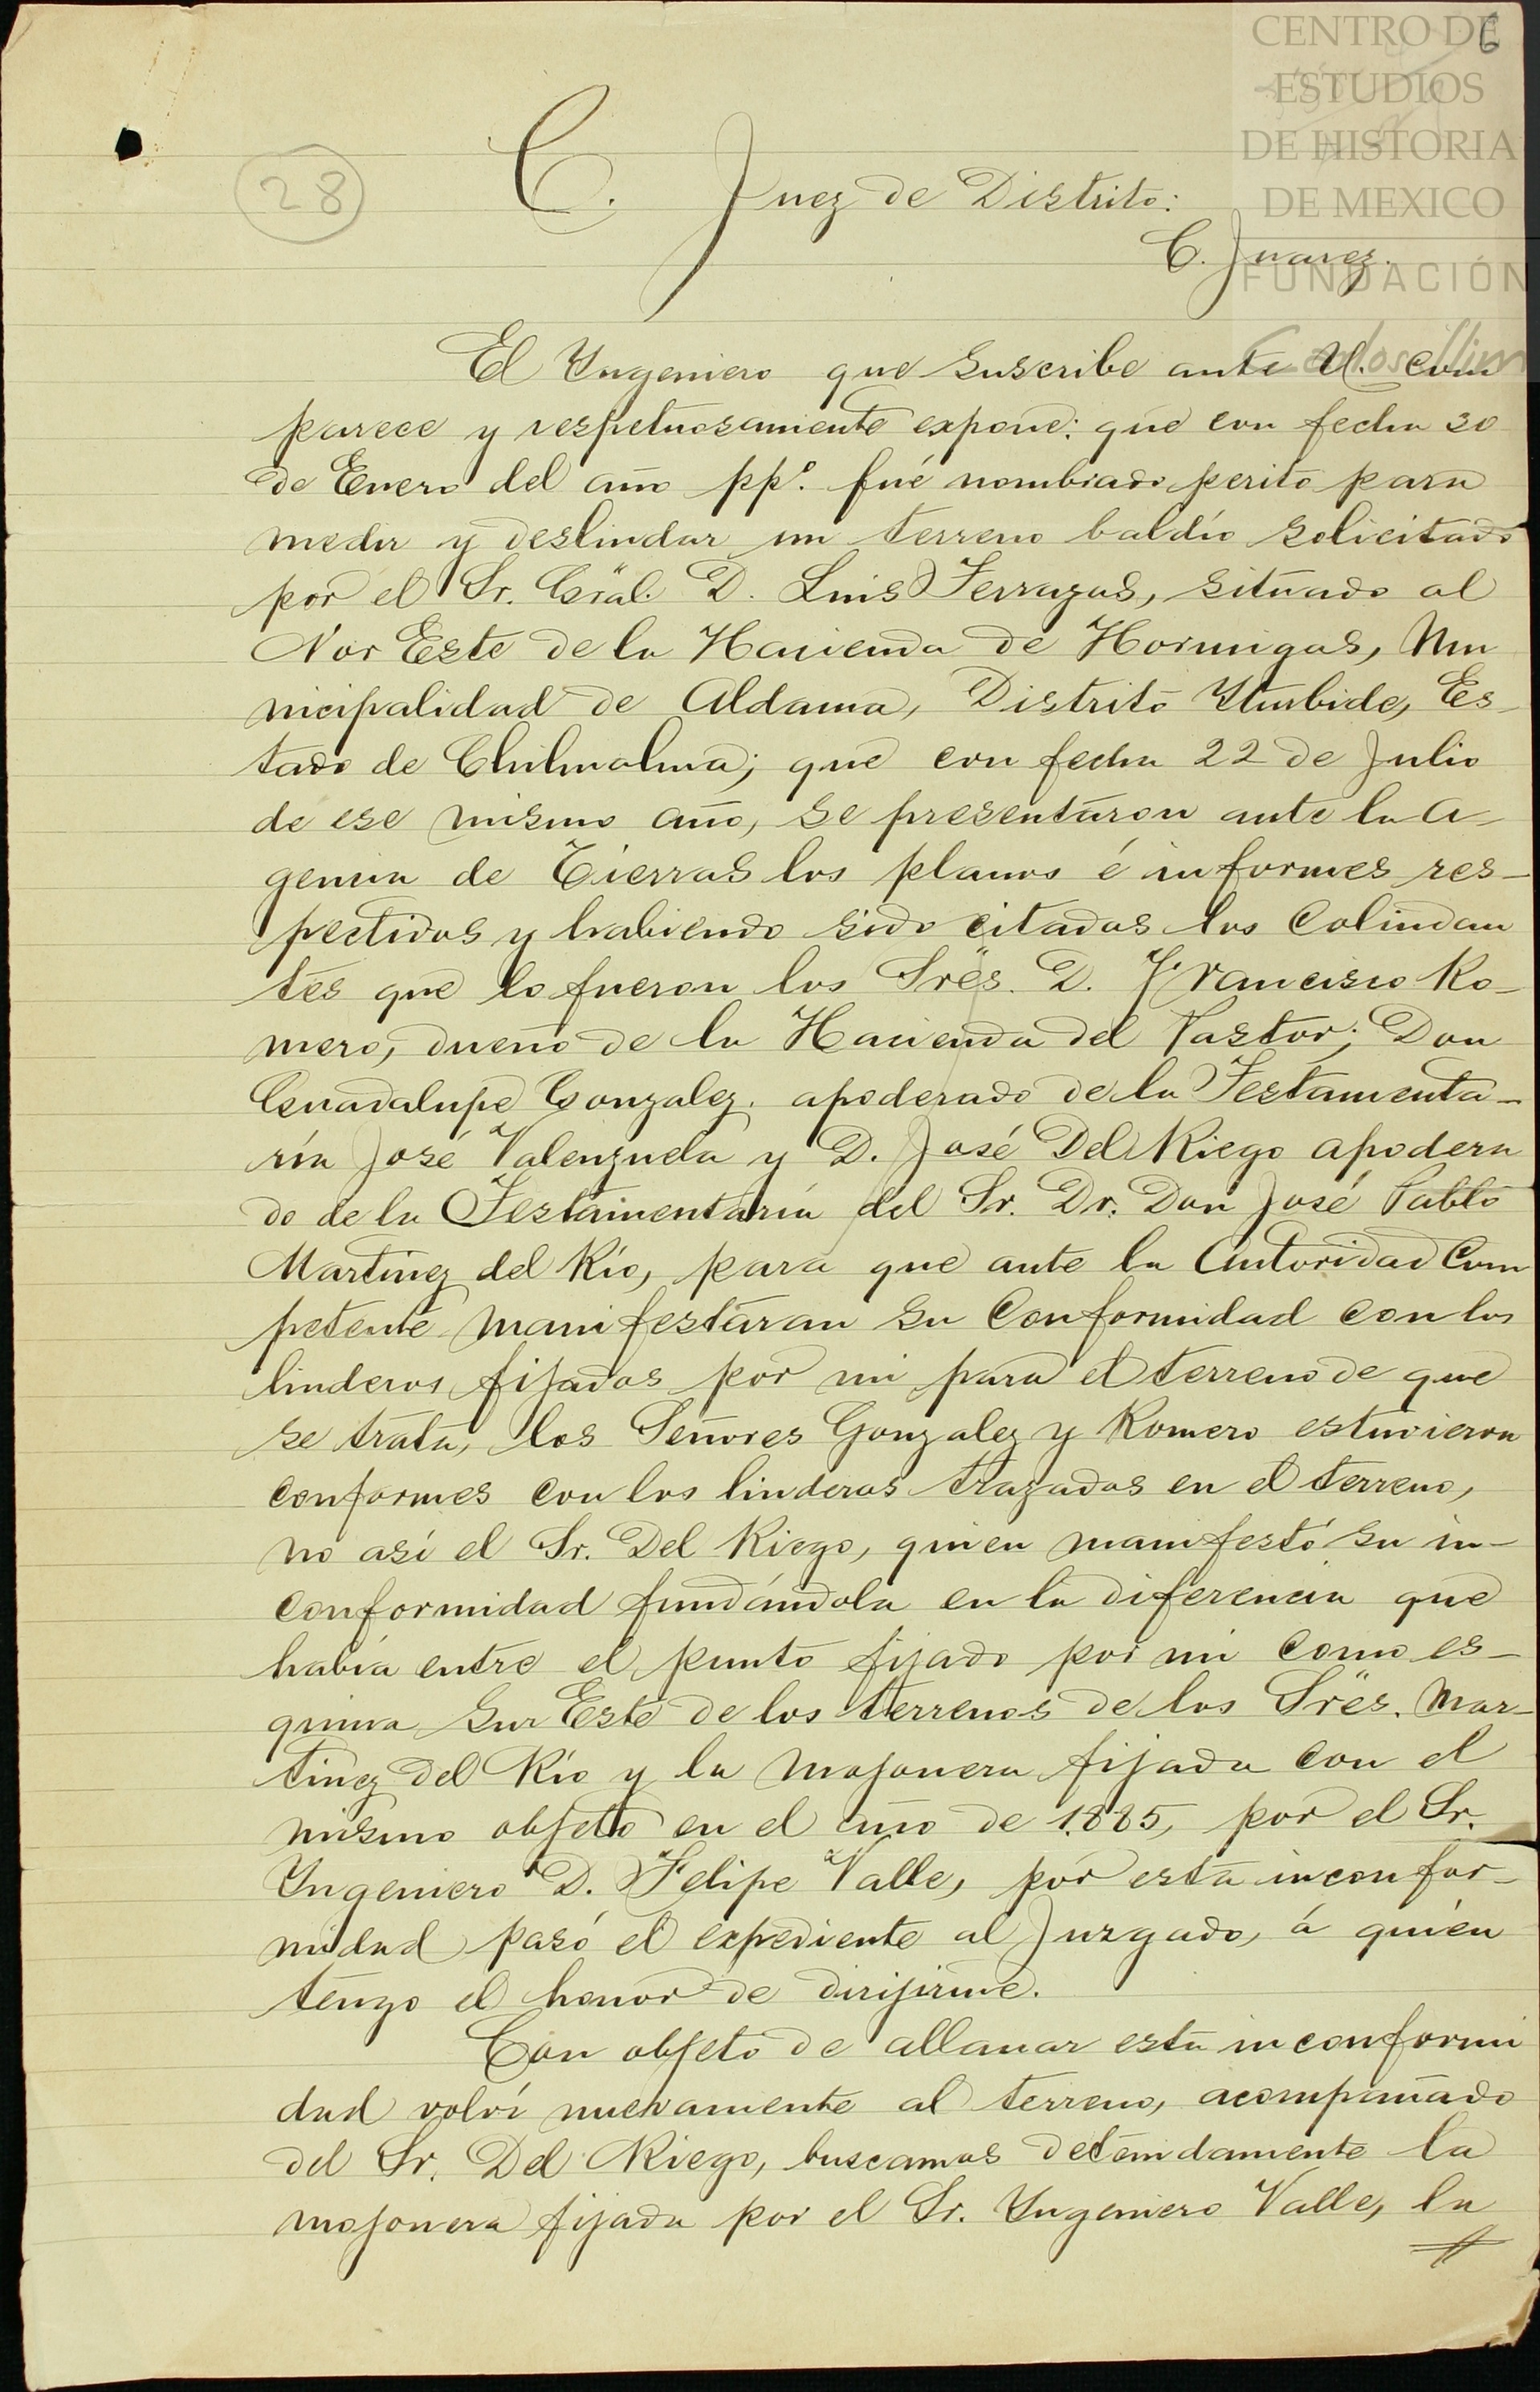 CENTRO DE
ESTUDIOS
DE HISTORIA
DE MEXICO
FUNDACIÓN
6
28
C. Juez de Distrito:
C. Juarez.
El Yngeniero que suscribe ante U. com
parece y respetuosamente expone: que con fecha 30
de Enero del año ppº. fué nombrado perito para
medir y deslindar un terreno baldío solicitado
por el Sr. Gral. D. Luis Terrazas, situado al
Nor Este de la Hacienda de Hormigas, Mu
nicipalidad de Aldama, Distrito Yturbide, Es-
tado de Chihuahua; que con fecha 22 de Julio
de ese mismo año, se presentáron ante la A-
gencia de Tierras los planos é informes res-
pectivos y habiendo sido citados los Colindan
tes que lo fueron los Sres. D. Francisco Ro-
mero, dueño de la Hacienda del Pastor; Don
Guadalupe Gonzalez apoderado de la Testamenta-
ría José Valenzuela y D. José Del Riego apodera
do de la Testamentaría del Sr. Dr. Don José Pablo
Martinez del Río, para que ante la Autoridad Com
petente manifestáran su Conformidad con los
linderos fijados por mi para el terreno de que
se trata, los Señores Gonzalez y Romero estuvieron
conformes con los linderos trazados en el terreno,
no así el Sr. Del Riego, quien manifestó su in-
conformidad fundándola en la diferencia que
había entre el punto fijado por mi como es-
quina Sur Este de los terrenos de los Sres. Mar-
tinez del Río y la mojonera fijada con el
mismo objeto en el año de 1885, por el Sr.
Yngeniero D. Felipe Valle, por esta inconfor-
midad pasó el expediente al Juzgado, á quien
tengo el honor de dirijirme.
Con objeto de allanar esta inconformi
dad volví nuevamente al terreno, acompañado
del Sr. Del Riego, buscamos detenidamente la
mojonera fijada por el Sr. Yngeniero Valle, la